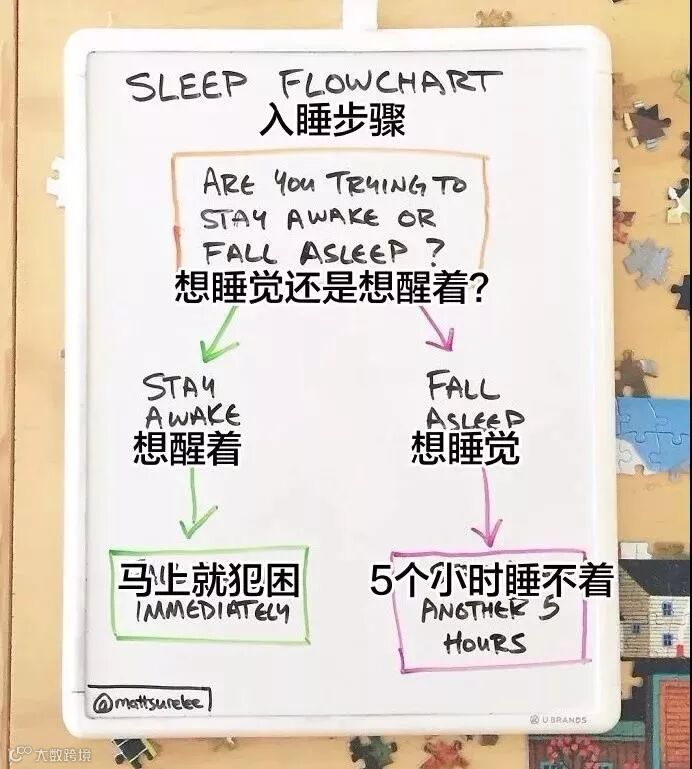 SLEEP FLOWCHART
入睡步骤
ARE YOU TRYING TO
STAY AWAKE OR
FALL ASLEEP ?
想睡觉还是想醒着?
STAY
AWAKE
想醒着
FALL
ASLEEP
想睡觉
马上就犯困
IMMEDIATELY
5个小时睡不着
ANOTHER 5
HOURS
@mattsurelee
U BRANDS
大数跨境